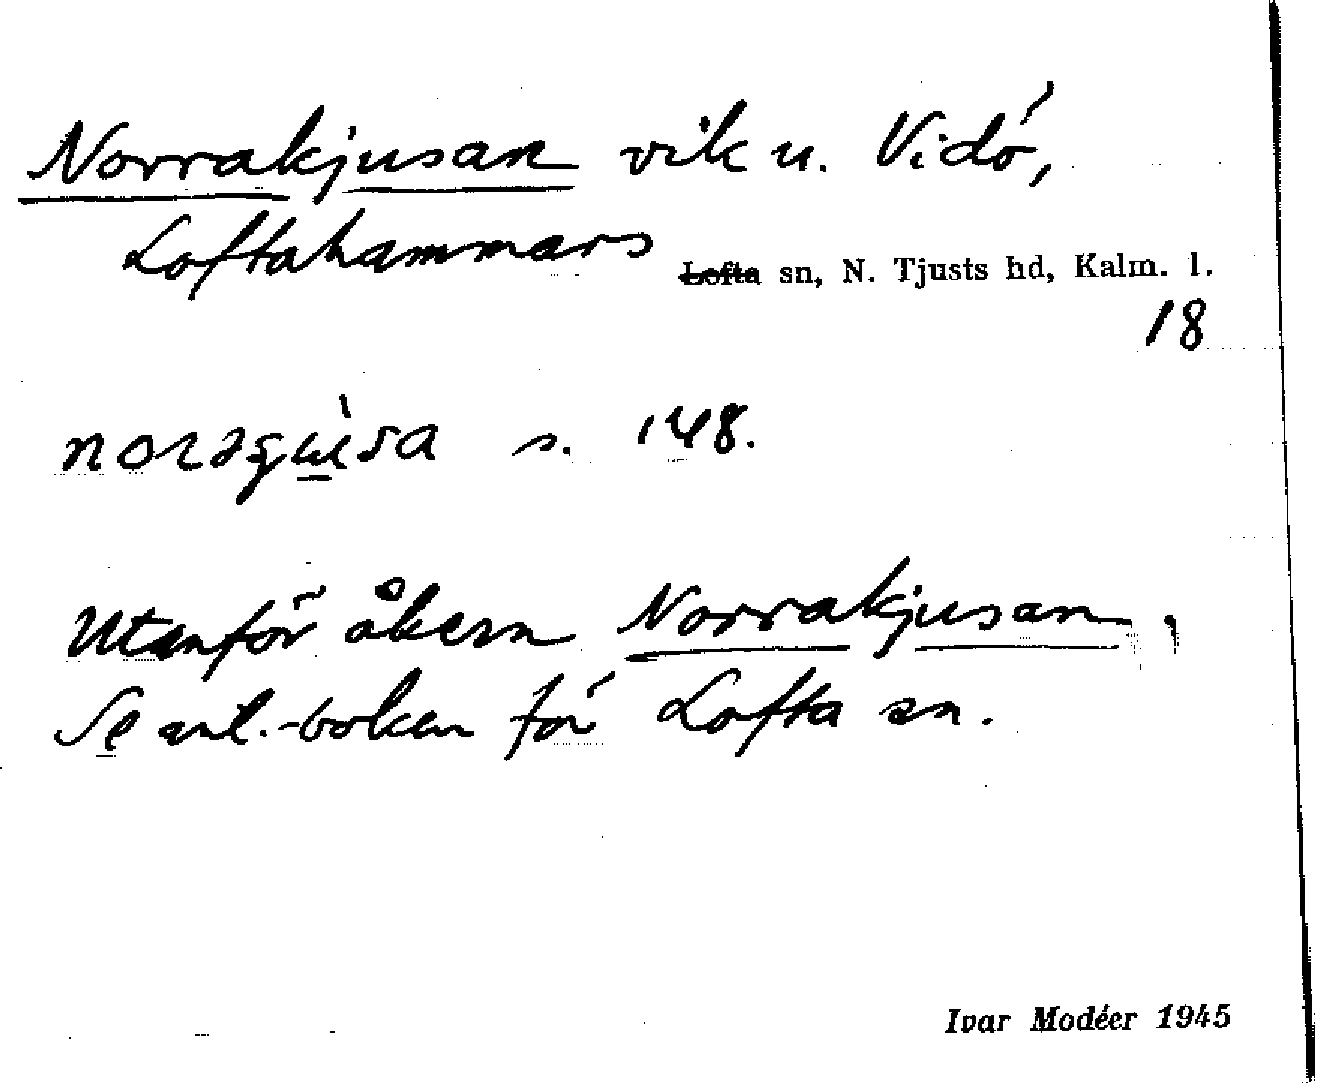 Norrakjusan vik u. Vidö,
Loftahammars Lofta sn, N. Tjusts hd, Kalm. l.
18
s. 148.
Utanför åkern Norrakjusan.
Se ant.-boken för Lofta sn.
Ivar Modéer 1945